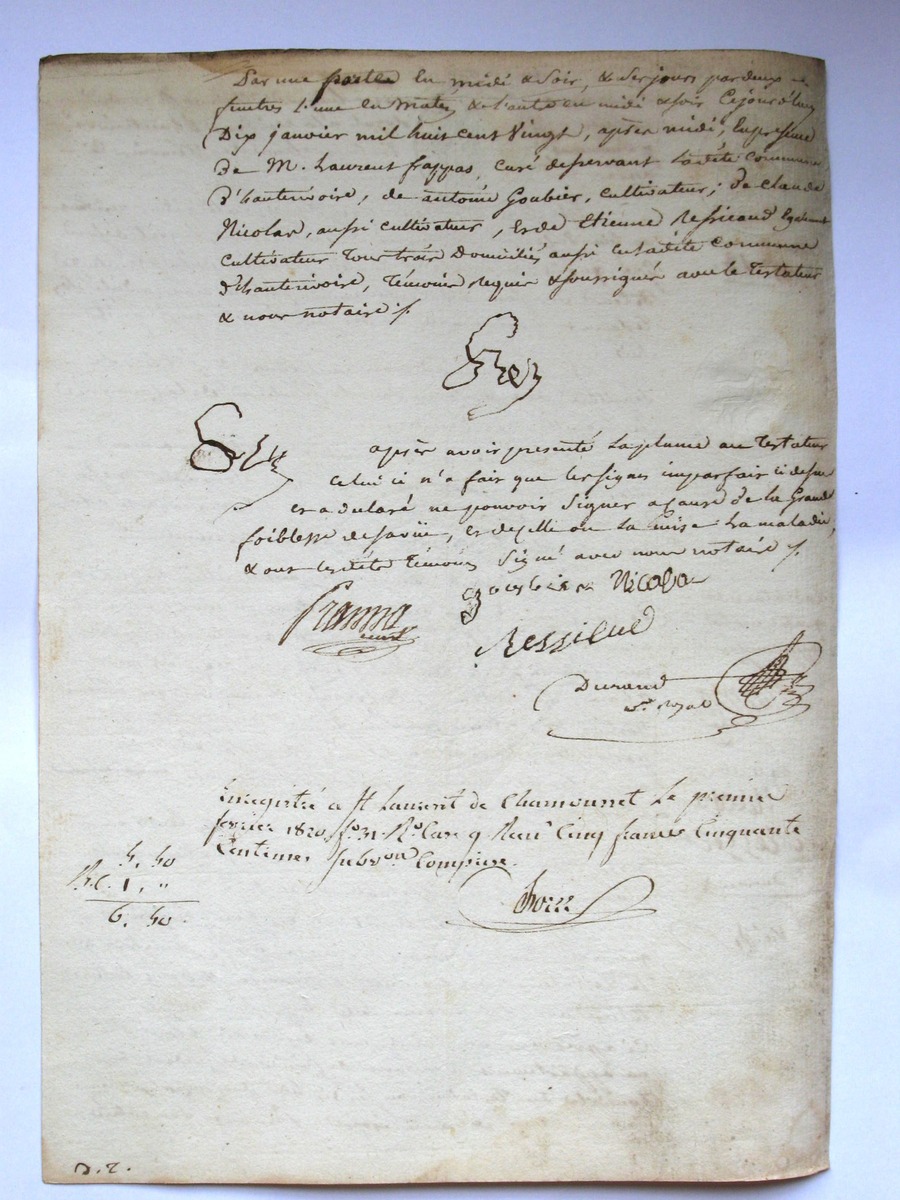 Par une porte en midi & soir, & ses jours par deux
fenêtres l'une en matin & l'autre en midi & soir Cejourd'huy
Dix janvier mil huit cent Vingt, après midi, En présence
de M. Laurent frappas, curé desservant ladite Commune
d'hauterivoire, de antoine Goubier, cultivateur, de Claude
Nicolas, aussi cultivateur, & de Etienne Ressicaud Egalement
cultivateur Tous trois Domiciliés aussi en ladite Commune
d'hauterivoire, Témoins Requis & soussignés avec le Testateur
& nous notaire /.
après avoir présenté la plume au Testateur
Celui ci n'a fait que les signes imparfait ci dessus
et a déclaré ne pouvoir Signer a cause de la Grande
foiblesse de sa vüe, & de celle où la mise la maladie,
& ont lesdits Témoins Signé avec nous notaire /.
goubier Nicola
Ressicaud
Durand
Nre Royal
Enregistré a St Laurent de Chamousset Le premier
fevrier 1820 fo 31 Ro Case 9 Recu Cinq francs Cinquante
Centimes Subvon Comprise.
5. 50
1, "
6. 50
D. 2.